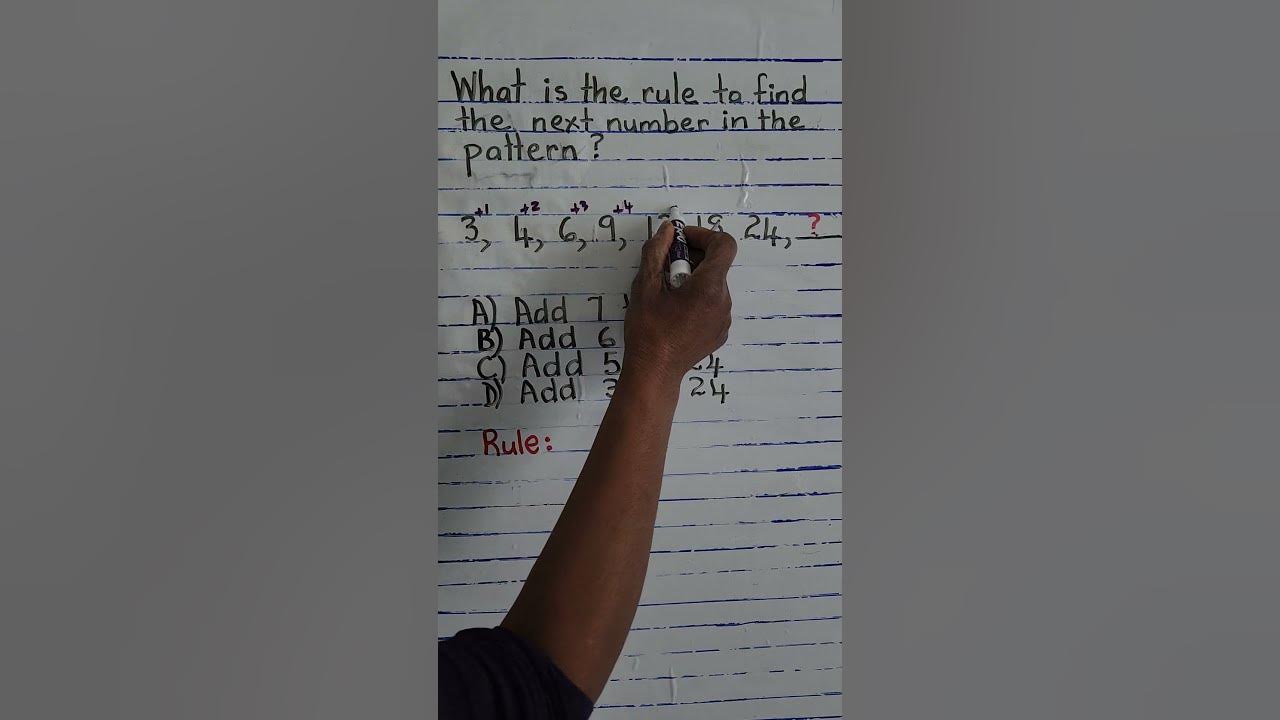 What is the rule to find
the next number in the
pattern?
+1 +2 +3 +4
3, 4, 6, 9, 18 24, ?
A) Add 7
B) Add 6
C) Add 5 24
D) Add 3 24
Rule: